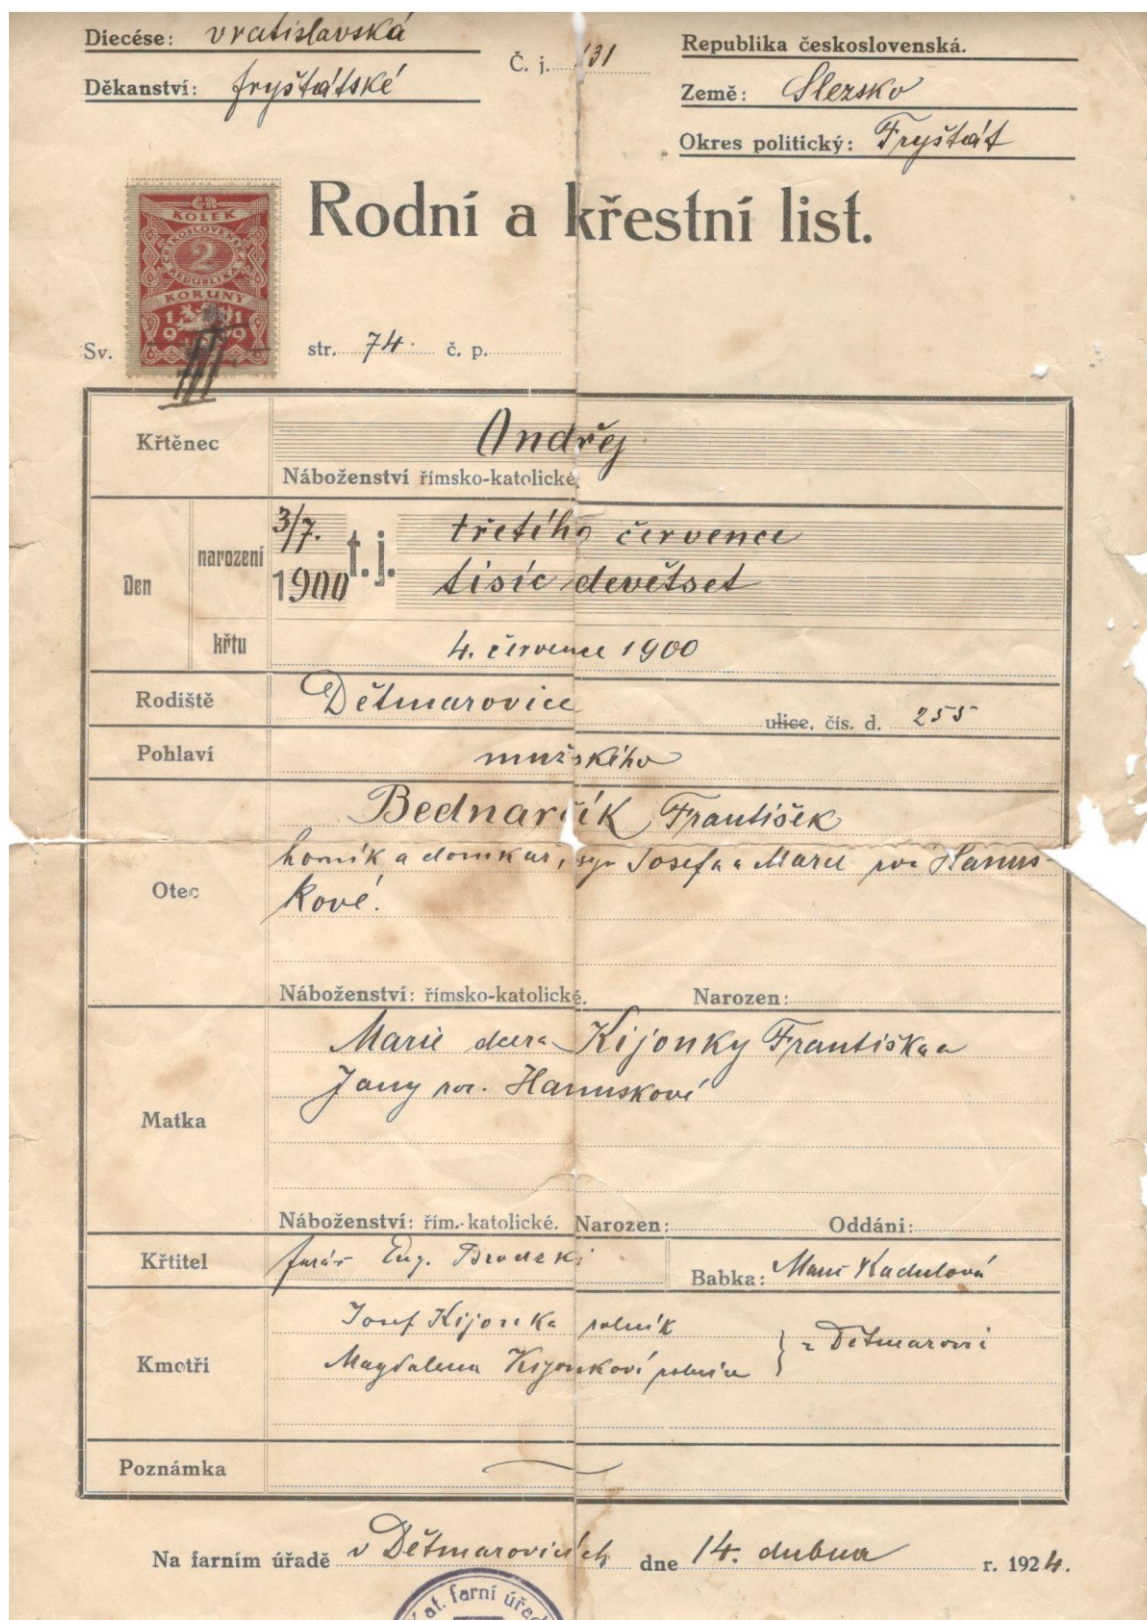 Diecése: vratislavská
Č. j. 131
Republika československá.
Děkanství: fryštátské
Země: Slezsko
Okres politický: Fryštát
Rodní a křestní list.
ČR
KOLEK
ČESKOSLOVENSKÁ
2
REPUBLIKA
KORUNY
1919
Sv. III. str. 74. č. p.
Křtěnec Ondřej
Náboženství římsko-katolické.
Den narození 3/7. 1900 t. j. třetího července
tisíc devětset
křtu 4. července 1900
Rodiště Dětmarovice ulice, čís. d. 255
Pohlaví mužského
Otec Bednarčík František
horník a domkař, syn Josefa a Marie roz. Hanus-
kové.
Náboženství: římsko-katolické. Narozen:
Matka Marie dcera Kijonky Františka a
Jany roz. Hanuskové
Náboženství: řím.-katolické. Narozen: Oddáni:
Křtitel farář Eug. Brodzki Babka: Marie Kadulová
Kmotři Josef Kijonka rolník
Magdalena Kijonková rolnice } z Dětmarovic
Poznámka
Na farním úřadě v Dětmarovicích dne 14. dubna r. 1924.
kat. farní úřad